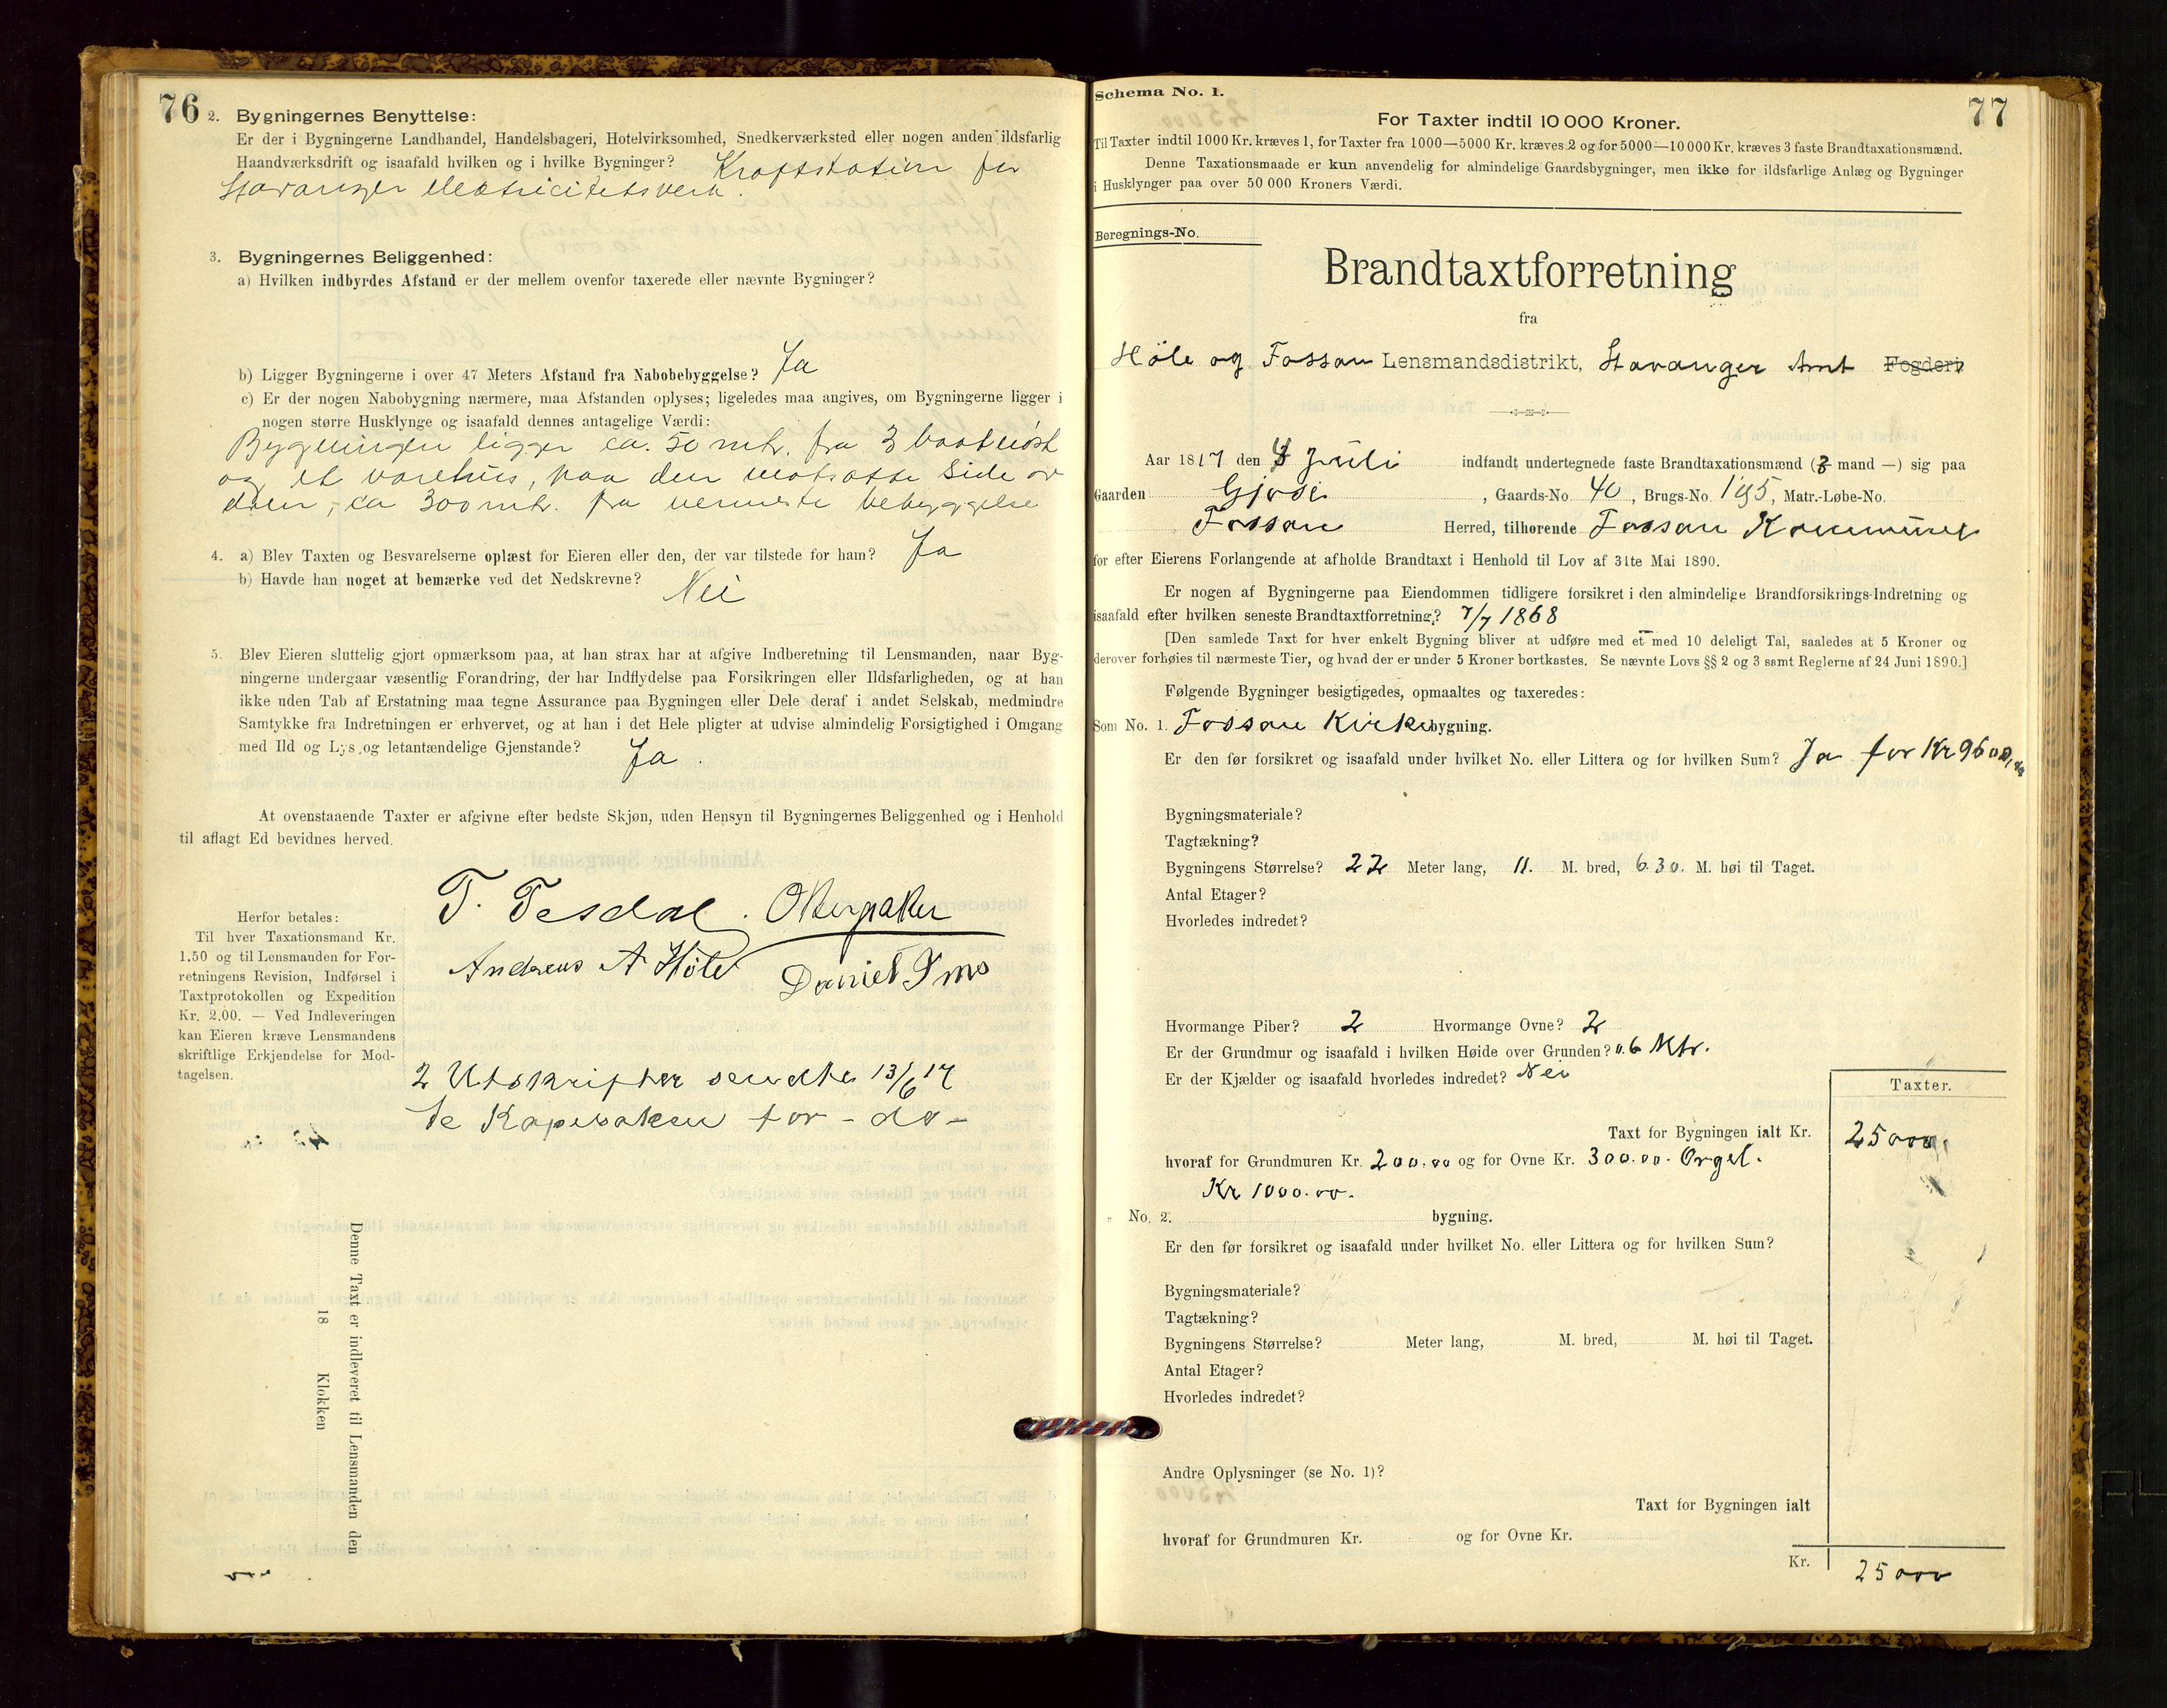 76
2. Bygningernes Benyttelse:
Er der i Bygningerne Landhandel, Handelsbageri, Hotelvirksomhed, Snedkerværksted eller nogen anden ildsfarlig
Haandværksdrift og isaafald hvilken og i hvilke Bygninger? Kraftstation for
Stavanger elektricitetsverk.
3. Bygningernes Beliggenhed:
a) Hvilken indbyrdes Afstand er der mellem ovenfor taxerede eller nævnte Bygninger?
b) Ligger Bygningerne i over 47 Meters Afstand fra Nabobebyggelse? Ja
c) Er der nogen Nabobygning nærmere, maa Afstanden oplyses; ligeledes maa angives, om Bygningerne ligger i
nogen større Husklynge og isaafald dennes antagelige Værdi:
Bygningen ligger ca. 50 mtr. fra 3 baatnøst
og et varehus, paa den motsatte side av
elven, ca 300 mtr. fra nermeste bebyggelse
4. a) Blev Taxten og Besvarelserne oplæst for Eieren eller den, der var tilstede for ham? Ja
b) Havde han noget at bemærke ved det Nedskrevne?
Nei
5. Blev Eieren sluttelig gjort opmærksom paa, at han strax har at afgive Indberetning til Lensmanden, naar Byg-
ningerne undergaar væsentlig Forandring, der har Indflydelse paa Forsikringen eller Ildsfarligheden, og at han
ikke uden Tab af Erstatning maa tegne Assurance paa Bygningen eller Dele deraf i andet Selskab, medmindre
Samtykke fra Indretningen er erhvervet, og at han i det Hele pligter at udvise almindelig Forsigtighed i Omgang
med Ild og Lys og letantændelige Gjenstande? Ja.
At ovenstaaende Taxter er afgivne efter bedste Skjøn, uden Hensyn til Bygningernes Beliggenhed og i Henhold
til aflagt Ed bevidnes herved.
T. Tesdal.
Andreas A Høle Daniel Ims
Herfor betales:
Til hver Taxationsmand Kr.
1.50 og til Lensmanden for For-
retningens Revision, Indførsel i
Taxtprotokollen og Expedition
Kr. 2.00. — Ved Indleveringen
kan Eieren kræve Lensmandens
skriftlige Erkjendelse for Mod-
tagelsen.
2 Utskrifter sendtes 13/6 17
for - do -
Denne Taxt er indleveret til Lensmanden den
18 Klokken
Schema No. 1.
77
For Taxter indtil 10 000 Kroner.
Til Taxter indtil 1000 Kr. kræves 1, for Taxter fra 1000—5000 Kr. kræves 2 og for 5000—10 000 Kr. kræves 3 faste Brandtaxationsmænd.
Denne Taxationsmaade er kun anvendelig for almindelige Gaardsbygninger, men ikke for ildsfarlige Anlæg og Bygninger
i Husklynger paa over 50 000 Kroners Værdi.
Beregnings-No.
Brandtaxtforretning
fra
Høle og Fossan Lensmandsdistrikt, Stavanger Amt Fogderi
Aar 1817 den Juli indfandt undertegnede faste Brandtaxationsmænd (3 mand —) sig paa
Gaarden Gjøse, Gaards-No. 40, Brugs-No. 195, Matr.-Løbe-No.
Fossan Herred, tilhørende Fossan Kommune
for efter Eierens Forlangende at afholde Brandtaxt i Henhold til Lov af 31te Mai 1890.
Er nogen af Bygningerne paa Eiendommen tidligere forsikret i den almindelige Brandforsikrings-Indretning og
isaafald efter hvilken seneste Brandtaxtforretning? 7/7 1868
[Den samlede Taxt for hver enkelt Bygning bliver at udføre med et med 10 deleligt Tal, saaledes at 5 Kroner og
derover forhøies til nærmeste Tier, og hvad der er under 5 Kroner bortkastes. Se nævnte Lovs §§ 2 og 3 samt Reglerne af 24 Juni 1890.]
Følgende Bygninger besigtigedes, opmaaltes og taxeredes:
Som No. 1. Fossan Kirkebygning.
Er den før forsikret og isaafald under hvilket No. eller Littera og for hvilken Sum? Ja for Kr 9600,
Bygningsmateriale?
Tagtækning?
Bygningens Størrelse? 22 Meter lang, 11. M. bred, 6.30. M. høi til Taget.
Antal Etager?
Hvorledes indredet?
Hvormange Piber? 2 Hvormange Ovne? 2
Er der Grundmur og isaafald i hvilken Høide over Grunden? 0.6 Mtr.
Er der Kjælder og isaafald hvorledes indredet? Nei
Taxter.
Taxt for Bygningen ialt Kr. 25000,
hvoraf for Grundmuren Kr. 200.00 og for Ovne Kr. 300.00. Orgel.
Kr 1000.00.
„ No. 2. bygning.
Er den før forsikret og isaafald under hvilket No. eller Littera og for hvilken Sum?
Bygningsmateriale?
Tagtækning?
Bygningens Størrelse? Meter lang, M. bred, M. høi til Taget.
Antal Etager?
Hvorledes indredet?
Andre Oplysninger (se No. 1)?
Taxt for Bygningen ialt
hvoraf for Grundmuren Kr. og for Ovne Kr.
Kr. 25000